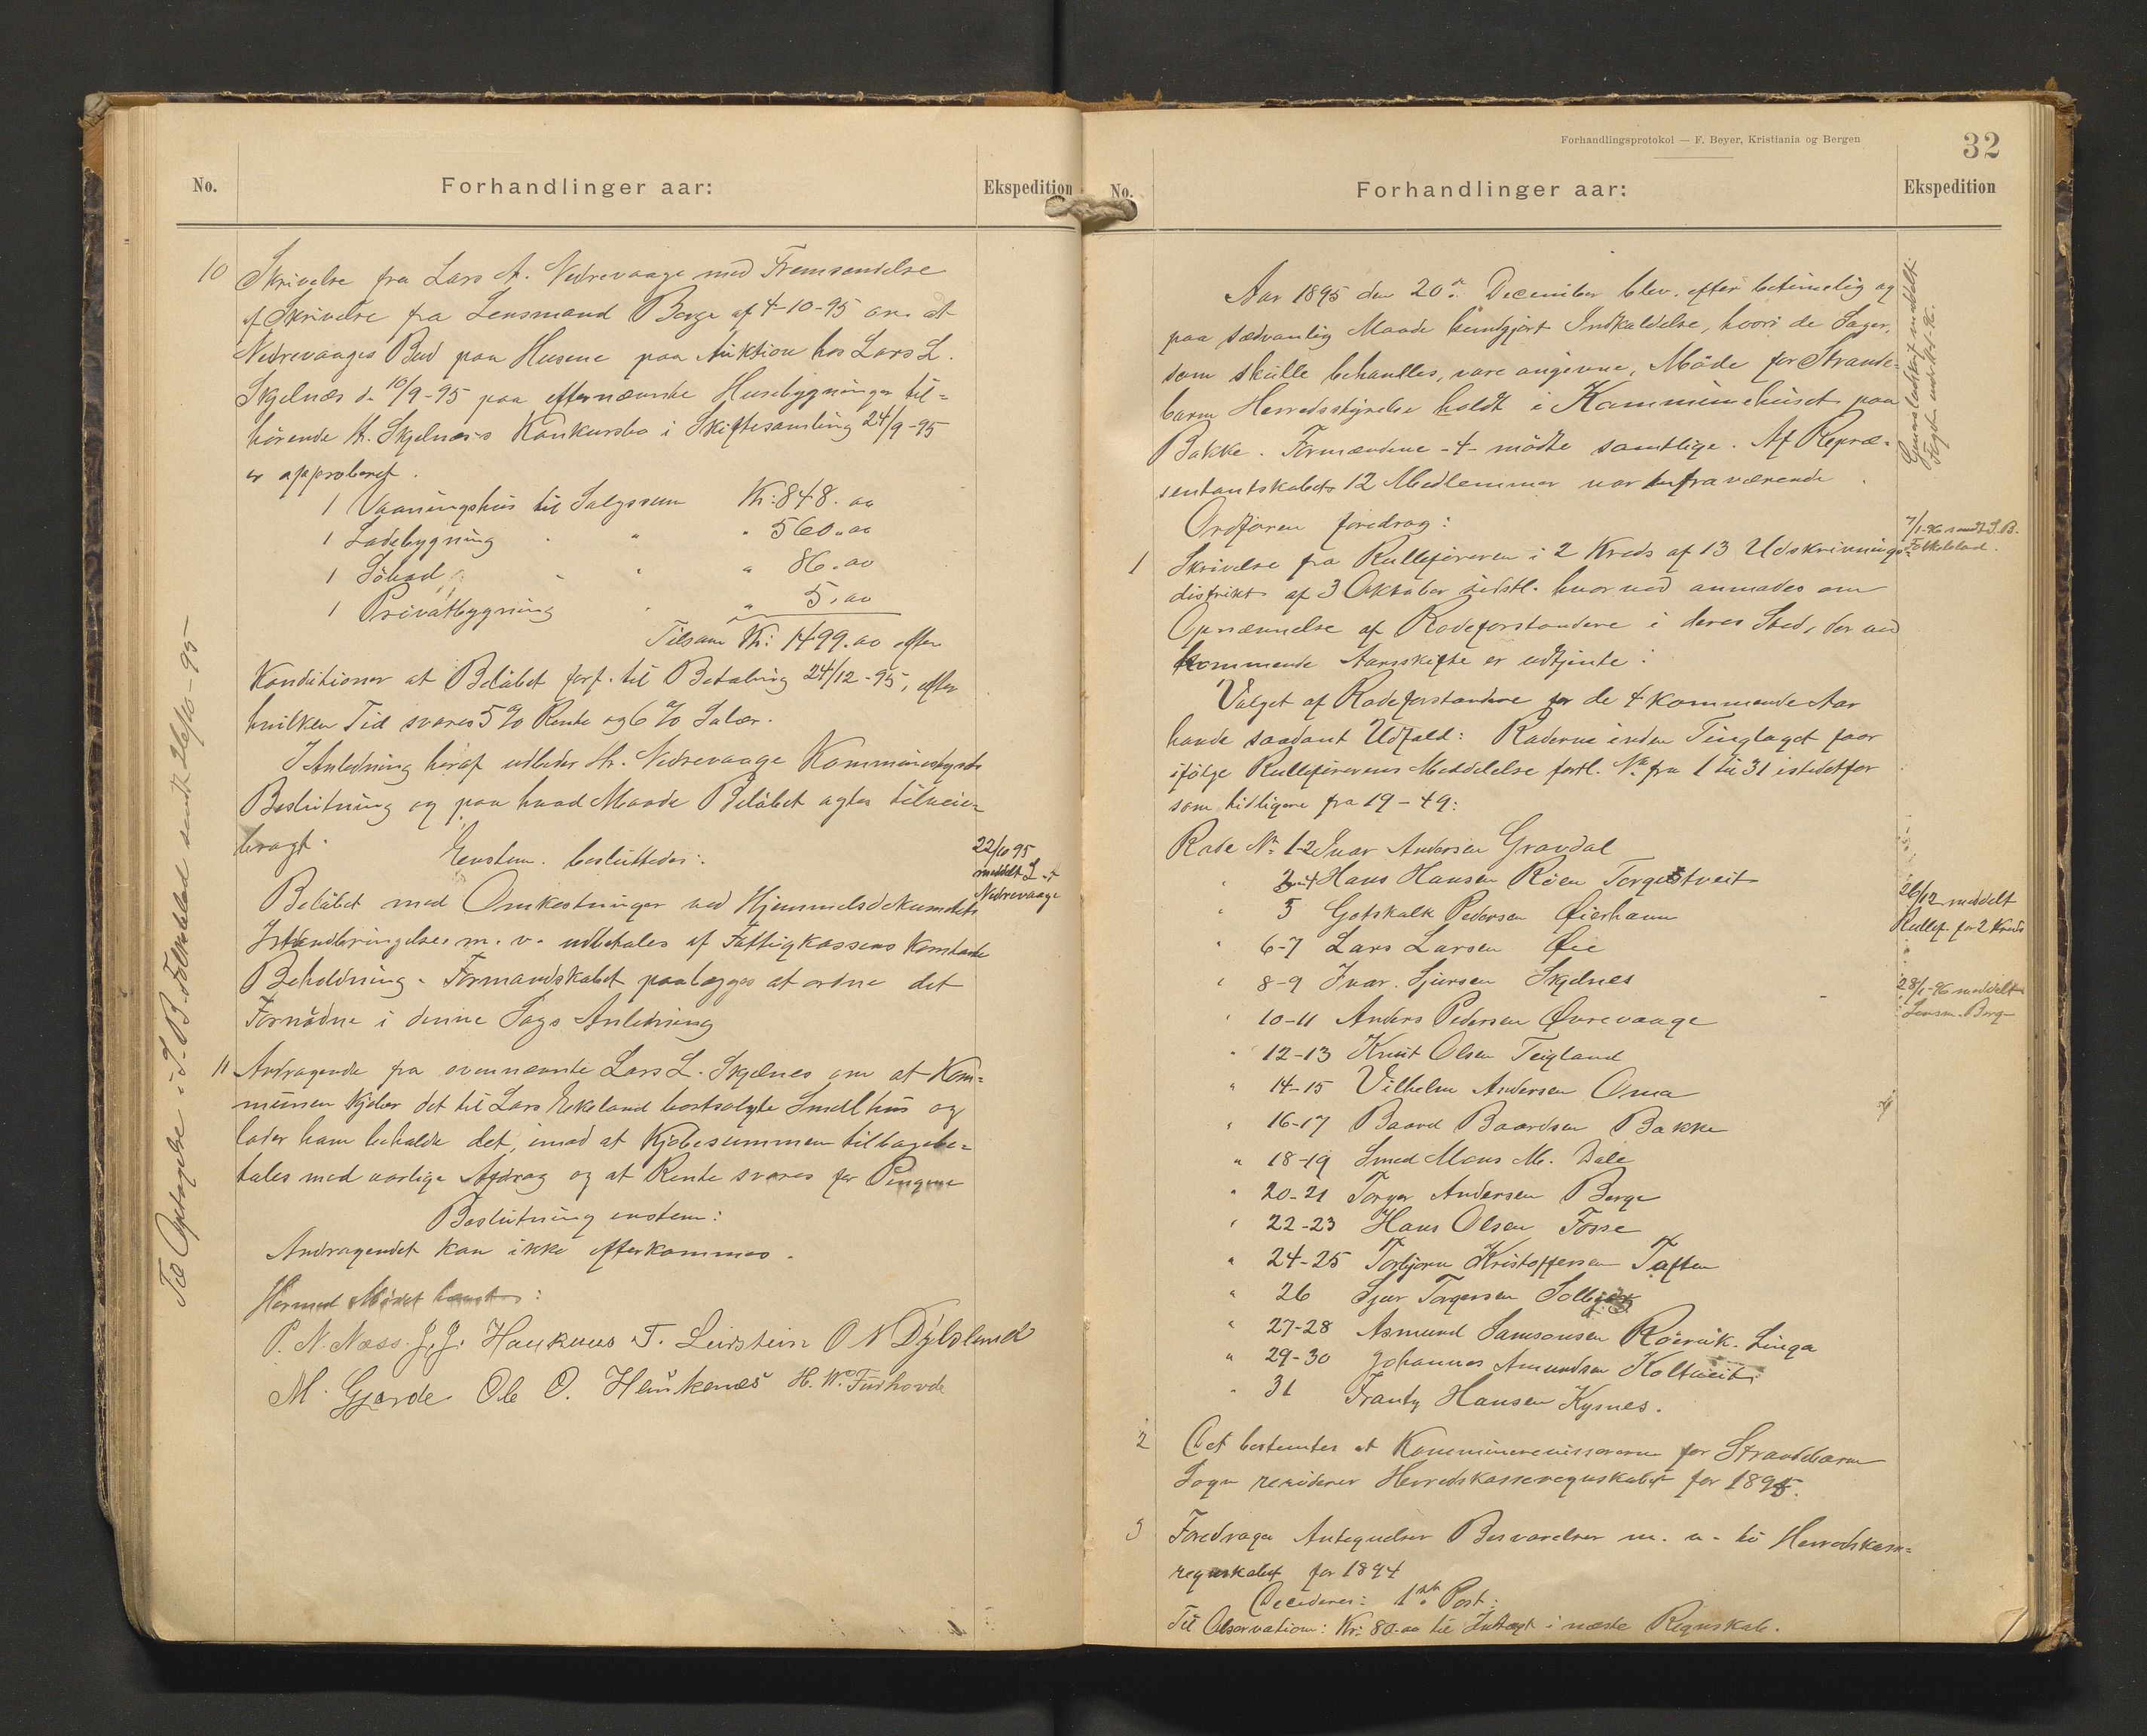 No.
Forhandlinger aar:
Ekspedition
10 Skrivelse fra Lars A. Nedrevaage med Fremsendelse
af Skrivelse fra Lensmand Berge af 4-10-95 om at
Nedrevaages Bud paa Husene paa Auktion hos Lars L.
Skjelnæs d. 10/9-95 paa efternævnte Husebygninger til=
hørende H. Skjelnæs's Konkursbo i Skiftesamling 24/9-95
er approberet.
1 Vaaningshus til Salgssum Kr: 848.00
1 Ladebygning " " 560.00
1 Söbod " " 86.00
1 Privatbygning " " 5.00
Tilsam Kr: 1499.00 efter
Konditioner at Belöbet forf. til Betaling 24/12-95, efter
hvilken Tid svares 5 % Rente og 6 % Salær.
I Anledning heraf udbeder Hr. Nedrevaage Kommunestyrets
Beslutning og paa hvad Maade Belöbet agtes tilveie=
bragt.
Enstem. besluttedes:
22/10 95
meddelt L
Nedrevaage
Belöbet med Omkostninger ved Hjemmelsdokumentets
Istandbringelse m. v. udbetales af Fattigkassens kontante
Beholdning. Formandskabet paalægges at ordne det
Fornödne i denne Sags Anledning
11 Andragende fra ovennævnte Lars L. Skjelnes om at Kom=
munen kjöber det til Lars Ekeland bortsolgte Smedhus og
lader ham beholde det, imod at Kjöbesummen tilbagebe=
tales med aarlige Afdrag og at Rente svares for Pengene
Beslutning enstem:
Andragendet kan ikke efterkommes.
Hermed Mödet hævet:
P. N. Næss. J. J. Haukenes T. Leirstein O N Dybsland
M. Gjerde Ole O. Haukenæs H. W.
Til Optagelse i S. B. Folkeblad sendt 26/10-95
Forhandlingsprotokol — F. Beyer, Kristiania og Bergen
32
No.
Forhandlinger aar:
Ekspedition
Aar 1895 den 20de December blev, efter betimelig og
paa sædvanlig Maade kundgjort Indkaldelse, hvori de Sager,
som skulle behandles, vare angivne, Möde for Strande-
barm Herredsstyrelse holdt i Kommunehuset paa
Bakke. Formændene -4- mödte samtlige. Af Repræ=
sentantskabets 12 Medlemmer var fraværende
Ordfören foredrog:
7/1-96 sendt S. B.
Folkeblad.
1 Skrivelse fra Rulleföreren i 2 Kreds af 13 Udskrivnings-
distrikt af 3 Oktober sidstl. hvorved anmodes om
Opnævnelse af Rodeforstandere i deres Sted, der ved
kommende Aarsskifte er udtjente:
Valget af Rodeforstandere for de 4 kommende Aar
havde saadant Udfald: Roderne inden Tinglaget faar
ifölge Rulleförerens Meddelelse fortl. No fra 1 til 31 istedetfor
som tidligere fra 19-49:
Rode No 1-2 Ivar Andersen Gravdal
" 3 & 4 Hans Hansen Röen Torgestveit
" 5 Gotskalk Pedersen Öierhavn
" 6-7 Lars Larsen Öie
" 8-9 Ivar Sjursen Skjelnes
" 10-11 Anders Pedersen Øvrevaage
" 12-13 Knut Olsen Teigland
" 14-15 Vilhelm Andersen Oma
" 16-17 Baard Baardsen Bakke
" 18-19 Smed Mons M. Dale
" 20-21 Torger Andersen Berge
" 22-23 Hans Olsen Fosse
" 24-25 Torbjørn Kristoffersen Taften
" 26 Sjur Torgersen
" 27-28 Asmund Samsonsen Röirvik. Linga
" 29-30 Johannes Amundsen Koltveit.
" 31 Frantz Hansen Kysnes.
26/12 meddelt
Rullef. for 2 Kreds
28/1-96 meddelt
Lensm. Berge
2 Det bestemtes at Kommunerevisorerne for Strandebarm
Sogn reviderer Herredskasseregnskabet for 1895.
3 Foredroges Antegnelser Besvarelser m. v. til Herredskasse=
regnskabet for 1894
Decideres: 1ste Post:
Til Observation: Kr: 80.00 til Indtægt i næste Regnskab.